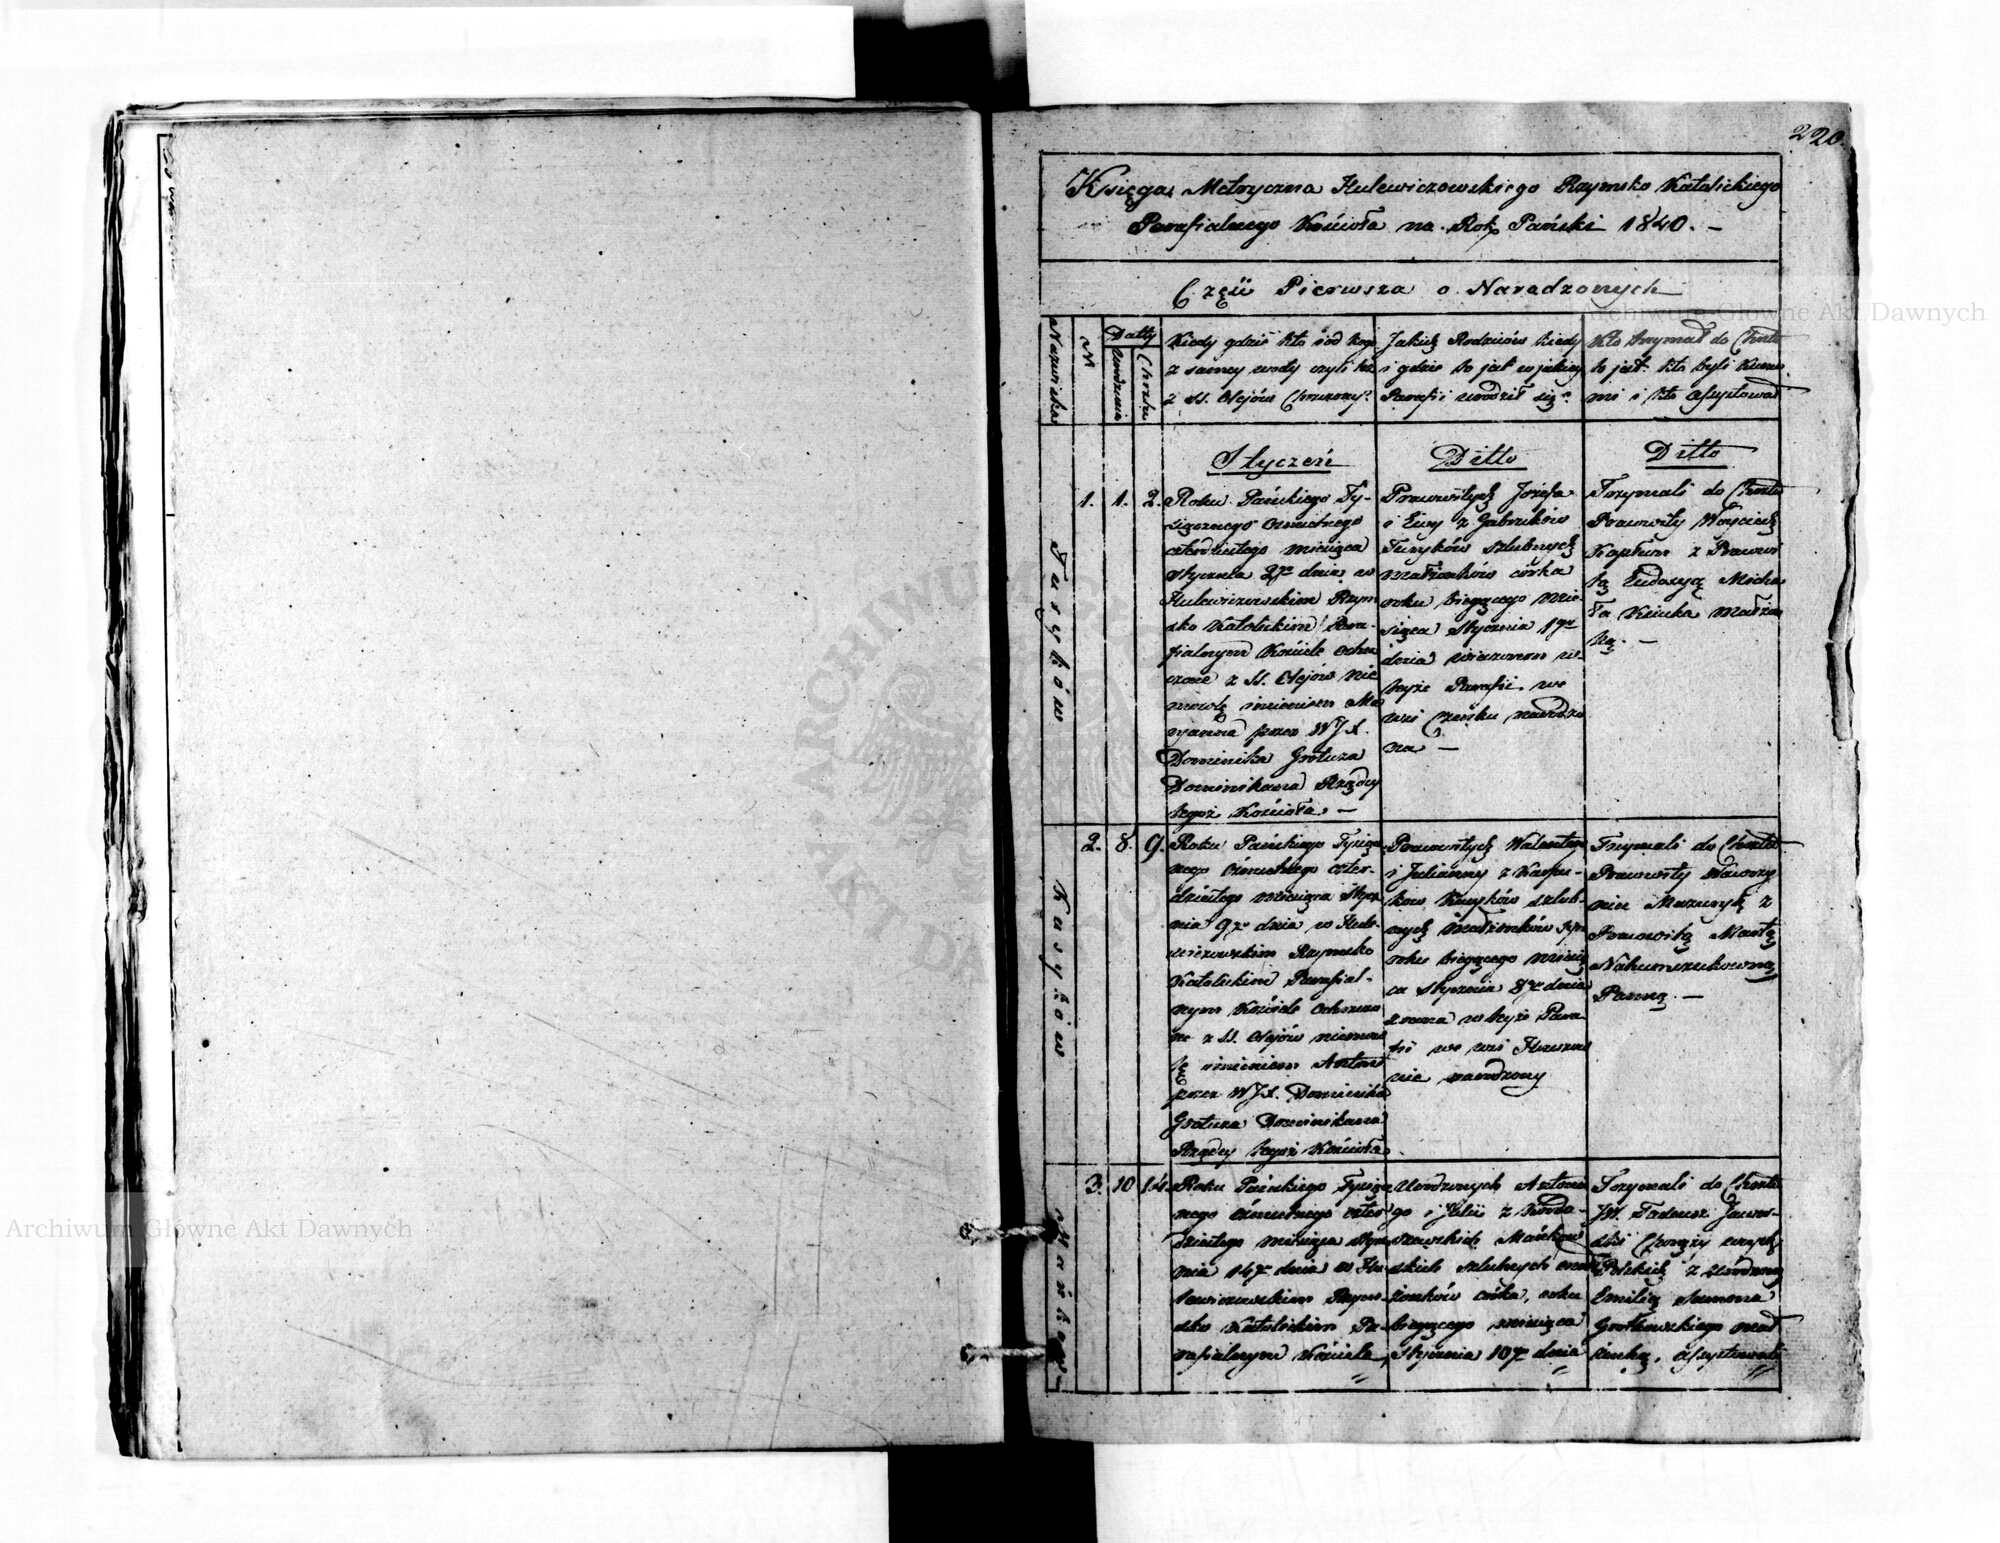 220.
Księga Metryczna Hulewiczowskiego Rzymsko Katolickiego
Parafialnego Kościoła na Rok Pański 1840. –
Część Pierwsza o Narodzonych
Nazwiska
N
Datty
Urodzenia
Chrztu
Kiedy gdzie kto i od kogo
z samey wody czyli też
z SS. Olejów Chrzczony?
Jakich Rodziców kiedy
i gdzie to jest w jakiey
Parafii urodził się?
Kto trzymał do Chrztu
to jest kto byli Kumo
mi i kto assystował
Styczeń
Ditto
Ditto
1. 1. 2.
Roku Pańskiego Ty-
siącznego Ośmsetnego
czterdziestego miesiąca
stycznia 2go dnia w
Hulewiczowskim Rzym
sko Katolickim Para-
fialnym Kościele ochrz
czone z SS. Olejów nie
mowlę imieniem Ma
ryanna przez WJX.
Dominika Grotuza
Dominikana Rządcy
tegoż Kościoła. –
Prawowitych Józefa
i Ewy z Gabruków
szlubnych
małżonków córka
roku bieżącego mie-
siąca stycznia 1go
dnia wieczorem w
teyże Parafii we
wsi narodzo
na –
Trzymali do Chrztu
Prawowity Woyciech
z Prawowi
tą Eudoxyą Micha
ła małżon
ką. –
2. 8. 9.
Roku Pańskiego Tysiącz
nego Ośmsetnego czter-
dziestego miesiąca Stycz
nia 9go dnia w Hule-
wiczowskim Rzymsko
Katolickim Parafial-
nym Kościele Ochrzczo
ne z SS. Olejów niemow
lę imieniem Antoni
przez WJX. Dominika
Grotuza Dominikana
Rządcy tegoż Kościoła.
Prawowitych Walentego
i Julianny z
szlub-
nych małżonków syn
roku bieżącego miesią
ca stycznia 8go dnia
z rana w teyże Para
fii we wsi
nie narodzony
Trzymali do Chrztu
Prawowity Wawrzy
niec Mazuryk z
Prawowitą Martą
Nahumczukowną
Panną. –
3. 10 14.
Roku Pańskiego Tysiącz
nego Ośmsetnego czter
dziestego miesiąca Stycz
nia 14go dnia w Hu-
lewiczowskim Rzym
sko Katolickim Pa-
rafialnym Kościele
Urodzonych Antonie
go i Julii z
Mańkow
skich szlubnych mał
żonków córka, roku
bieżącego miesiąca
Stycznia 10go dnia
Trzymali do Chrztu
JW. Tadeusz Jawor-
ski Chorąży woysk
Polskich z Urodzoną
Emilią
Grotkowskiego mał
żonką. assystowali
Archiwum Główne Akt Dawnych
Archiwum Główne Akt Dawnych